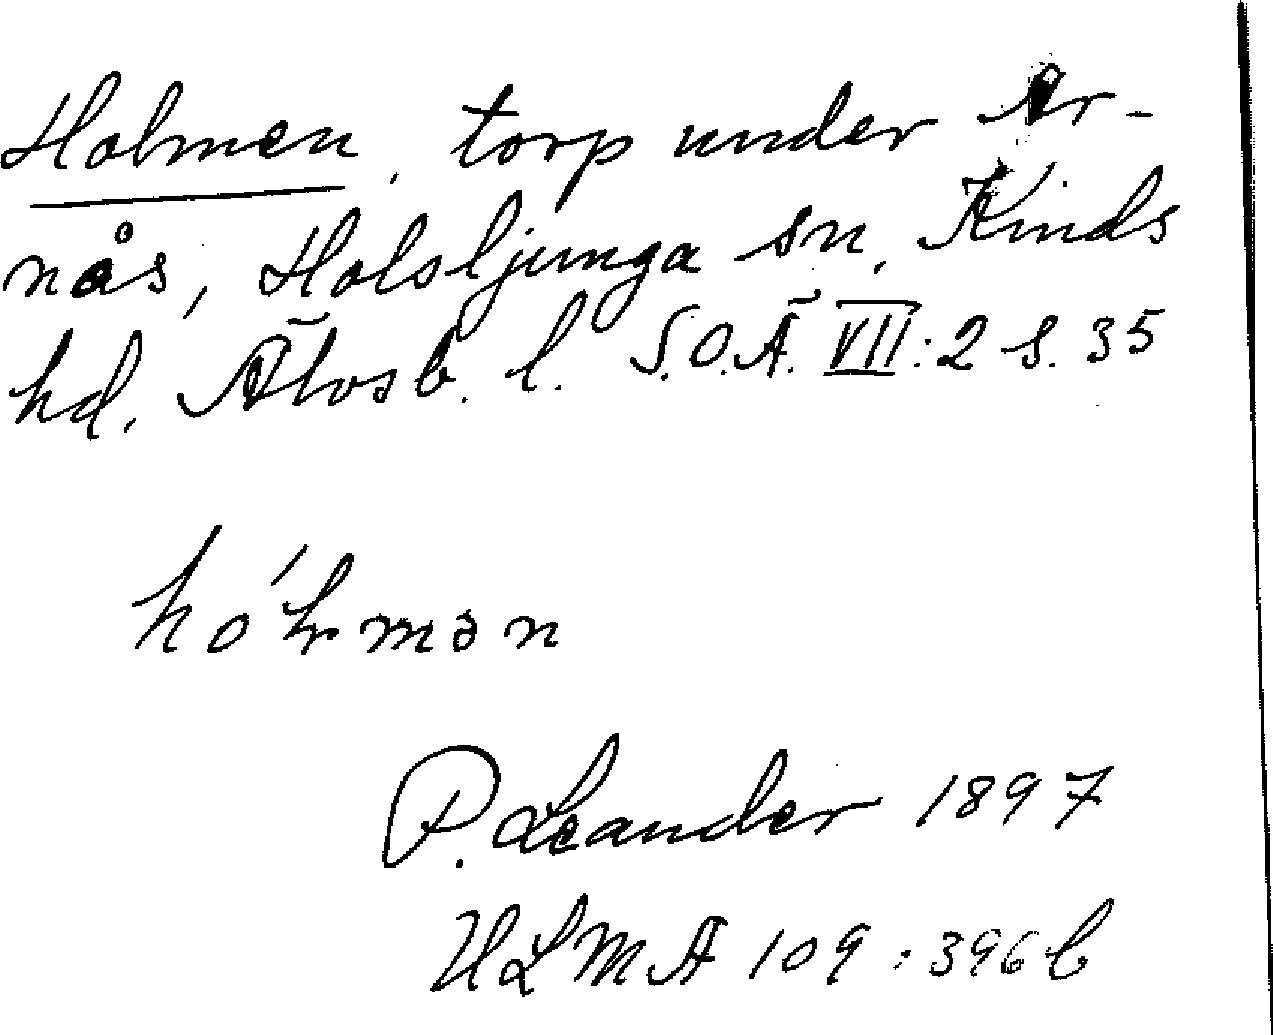 Holmen, torp under Ar-
nås, Holsljunga sn, Kinds
hd. Älvsb. l. S.O.Ä. VII:2 s. 35
hó'ɫmən
P. Leander 1897
ULMA 109:396b